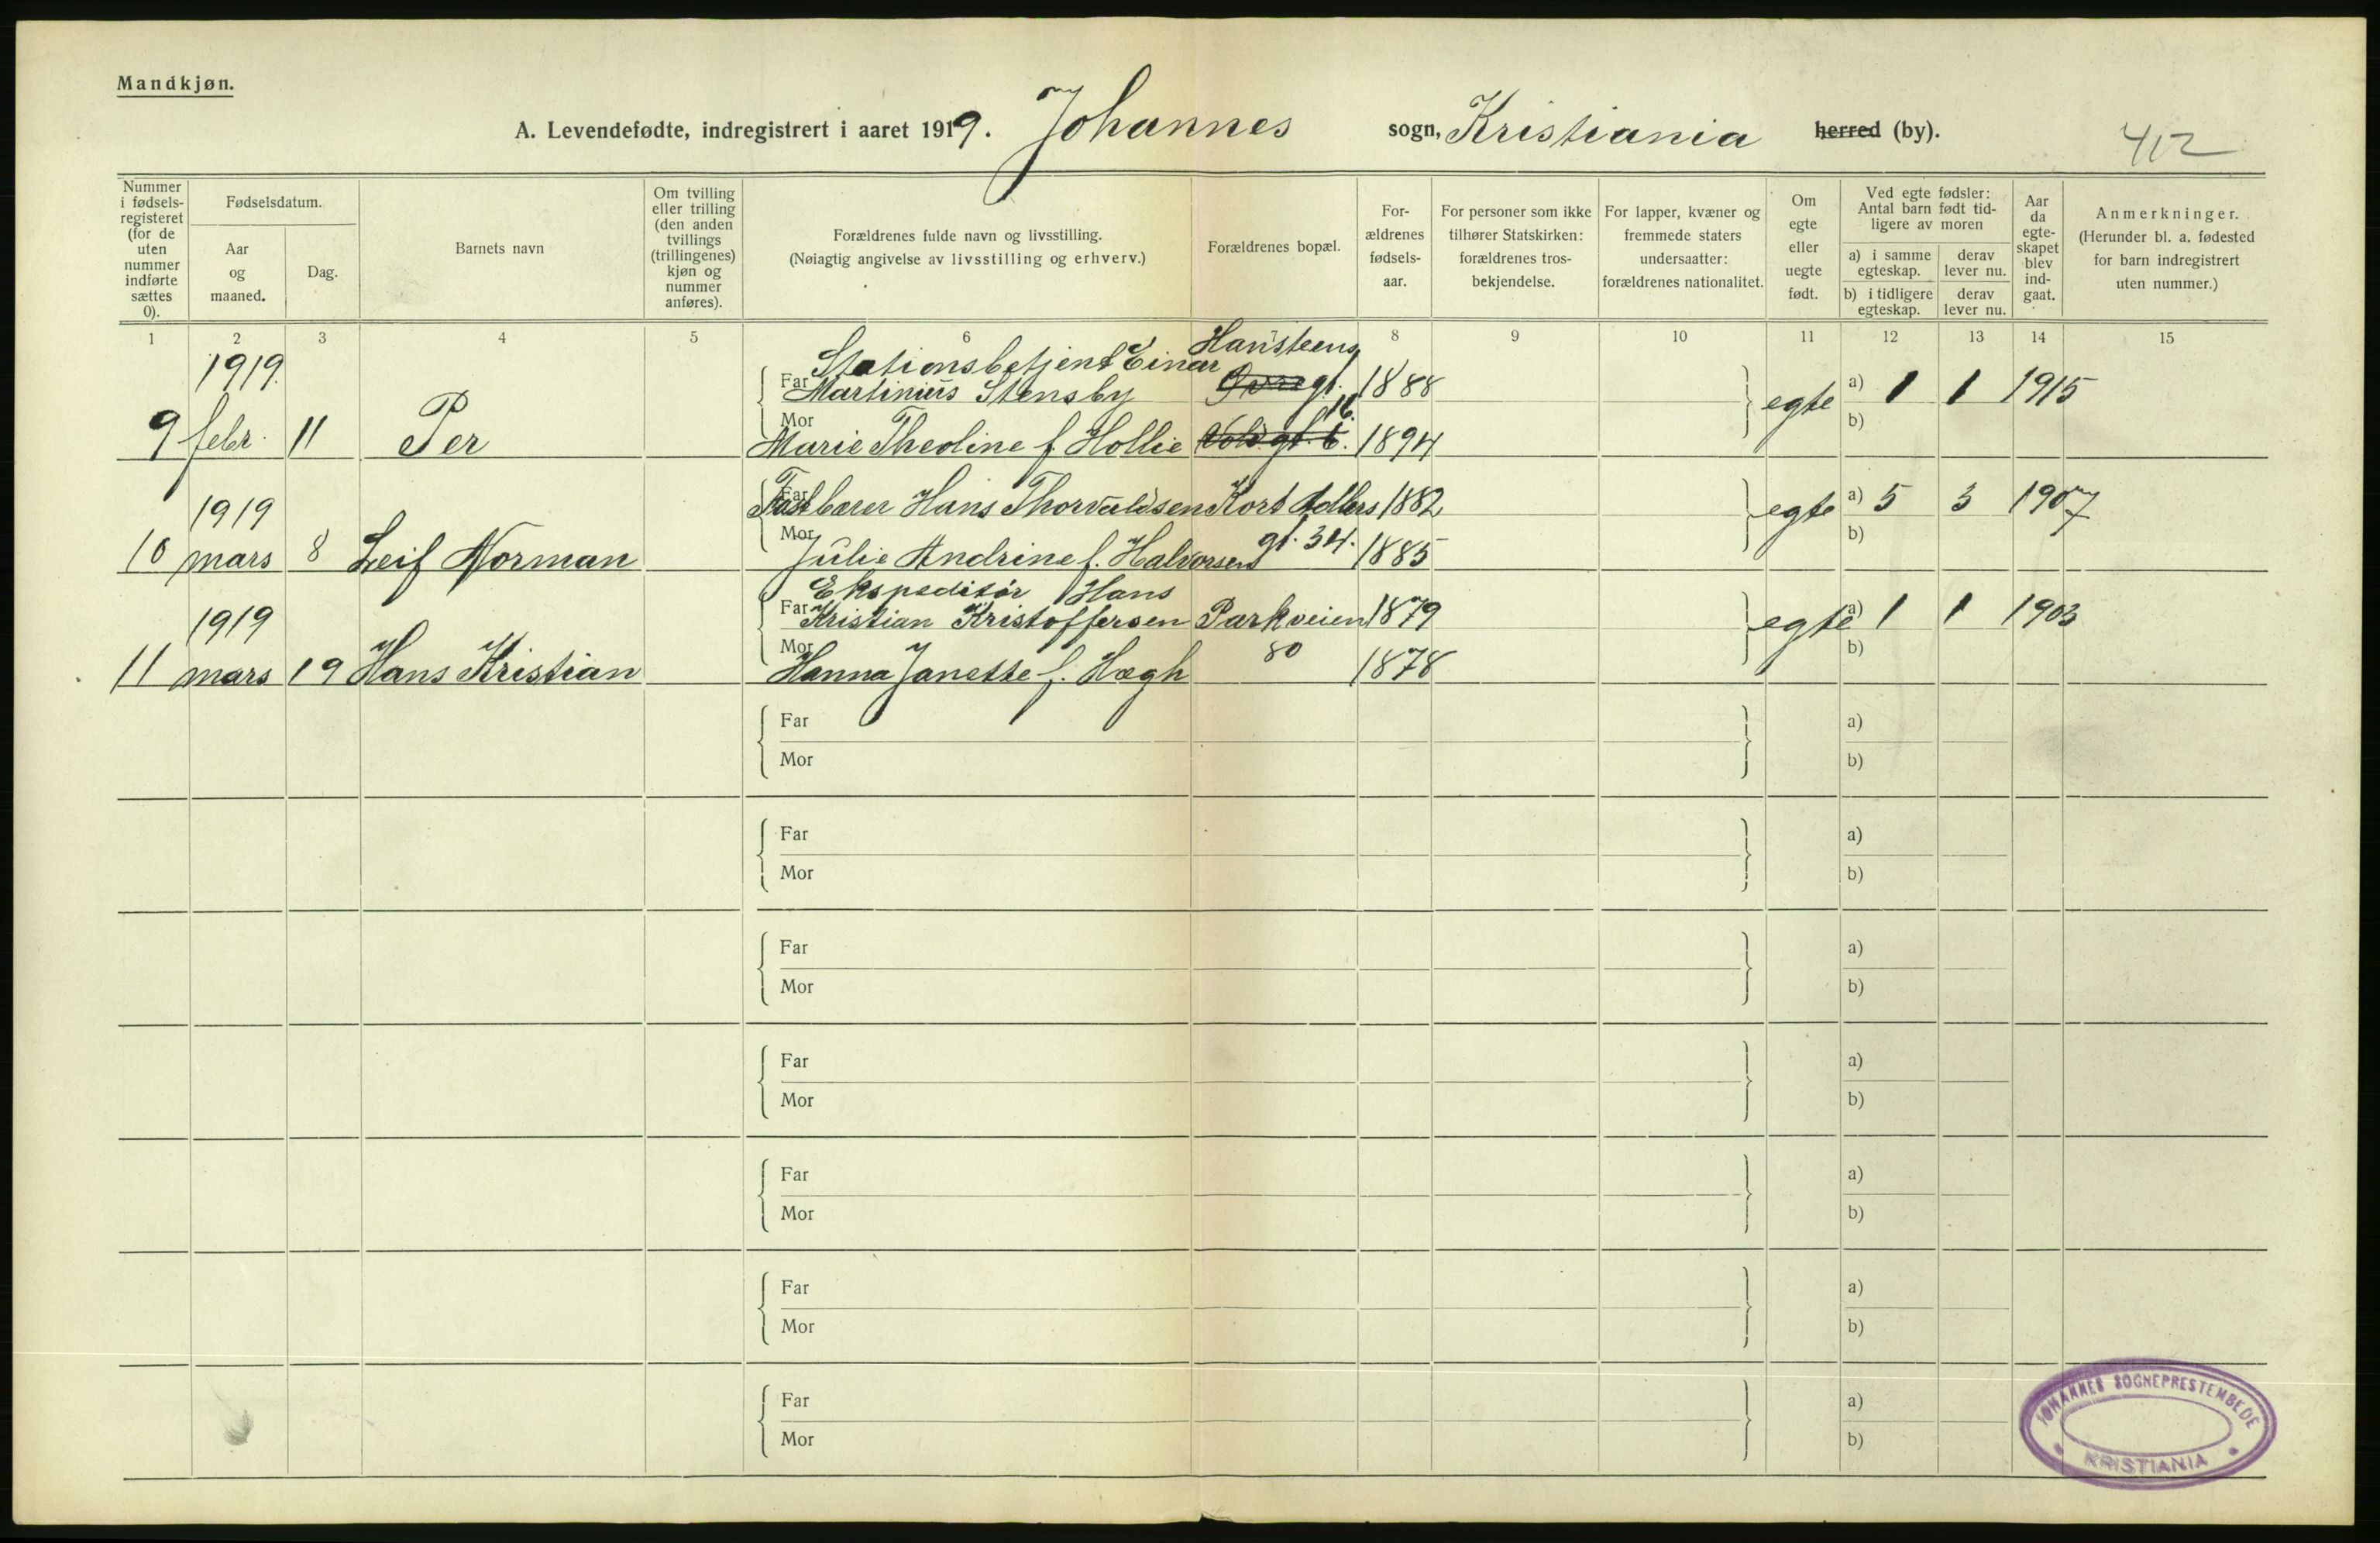 Mandkjøn.
A. Levendefødte, indregistrert i aaret 1919. Johannes sogn, Kristiania herred (by).
412
Nummer i fødsels-registeret (for de uten nummer indførte sættes 0).
Fødselsdatum.
Aar og maaned.
Dag.
Barnets navn
Om tvilling eller trilling (den anden tvillings (trillingenes) kjøn og nummer anføres).
Forældrenes fulde navn og livsstilling.
(Nøiagtig angivelse av livsstilling og erhverv.)
Forældrenes bopæl.
For-ældrenes fødsels-aar.
For personer som ikke tilhører Statskirken: forældrenes tros-bekjendelse.
For lapper, kvæner og fremmede staters undersaatter: forældrenes nationalitet.
Om egte eller uegte født.
Ved egte fødsler: Antal barn født tid-ligere av moren
a) i samme egteskap.
derav lever nu.
b) i tidligere egteskap.
derav lever nu.
Aar da egte-skapet blev ind-gaat.
Anmerkninger.
(Herunder bl. a. fødested for barn indregistrert uten nummer.)
1 2 3 4 5 6 7 8 9 10 11 12 13 14 15
1919.
Stationsbetjent Einar Hansteens
Far Martinius Stensby gt. 1888
16.
egte a) 1 1 1915
b)
9 febr. 11 Per
Mor Marie Theoline f. Hollie Voldgt. 6. 1894
1919
Far Hans Thorvaldsen Kort Adlers 1882
egte a) 5 3 1907
b)
10 mars 8 Leif Norman
Mor Julie Andrine f. Halvorsen gt. 34. 1885
Ekspeditør Hans
1919
Far Kristian Kristoffersen Parkveien 1879
egte a) 1 1 1903
b)
11 mars 19 Hans Kristian
Mor Hanna Janette f. Høegh 80 1878
Far a)
Mor b)
Far a)
Mor b)
Far a)
Mor b)
Far a)
Mor b)
Far a)
Mor b)
Far a)
Mor b)
Far a)
Mor b)
JOHANNES SOGNEPRESTEMBEDE
KRISTIANIA